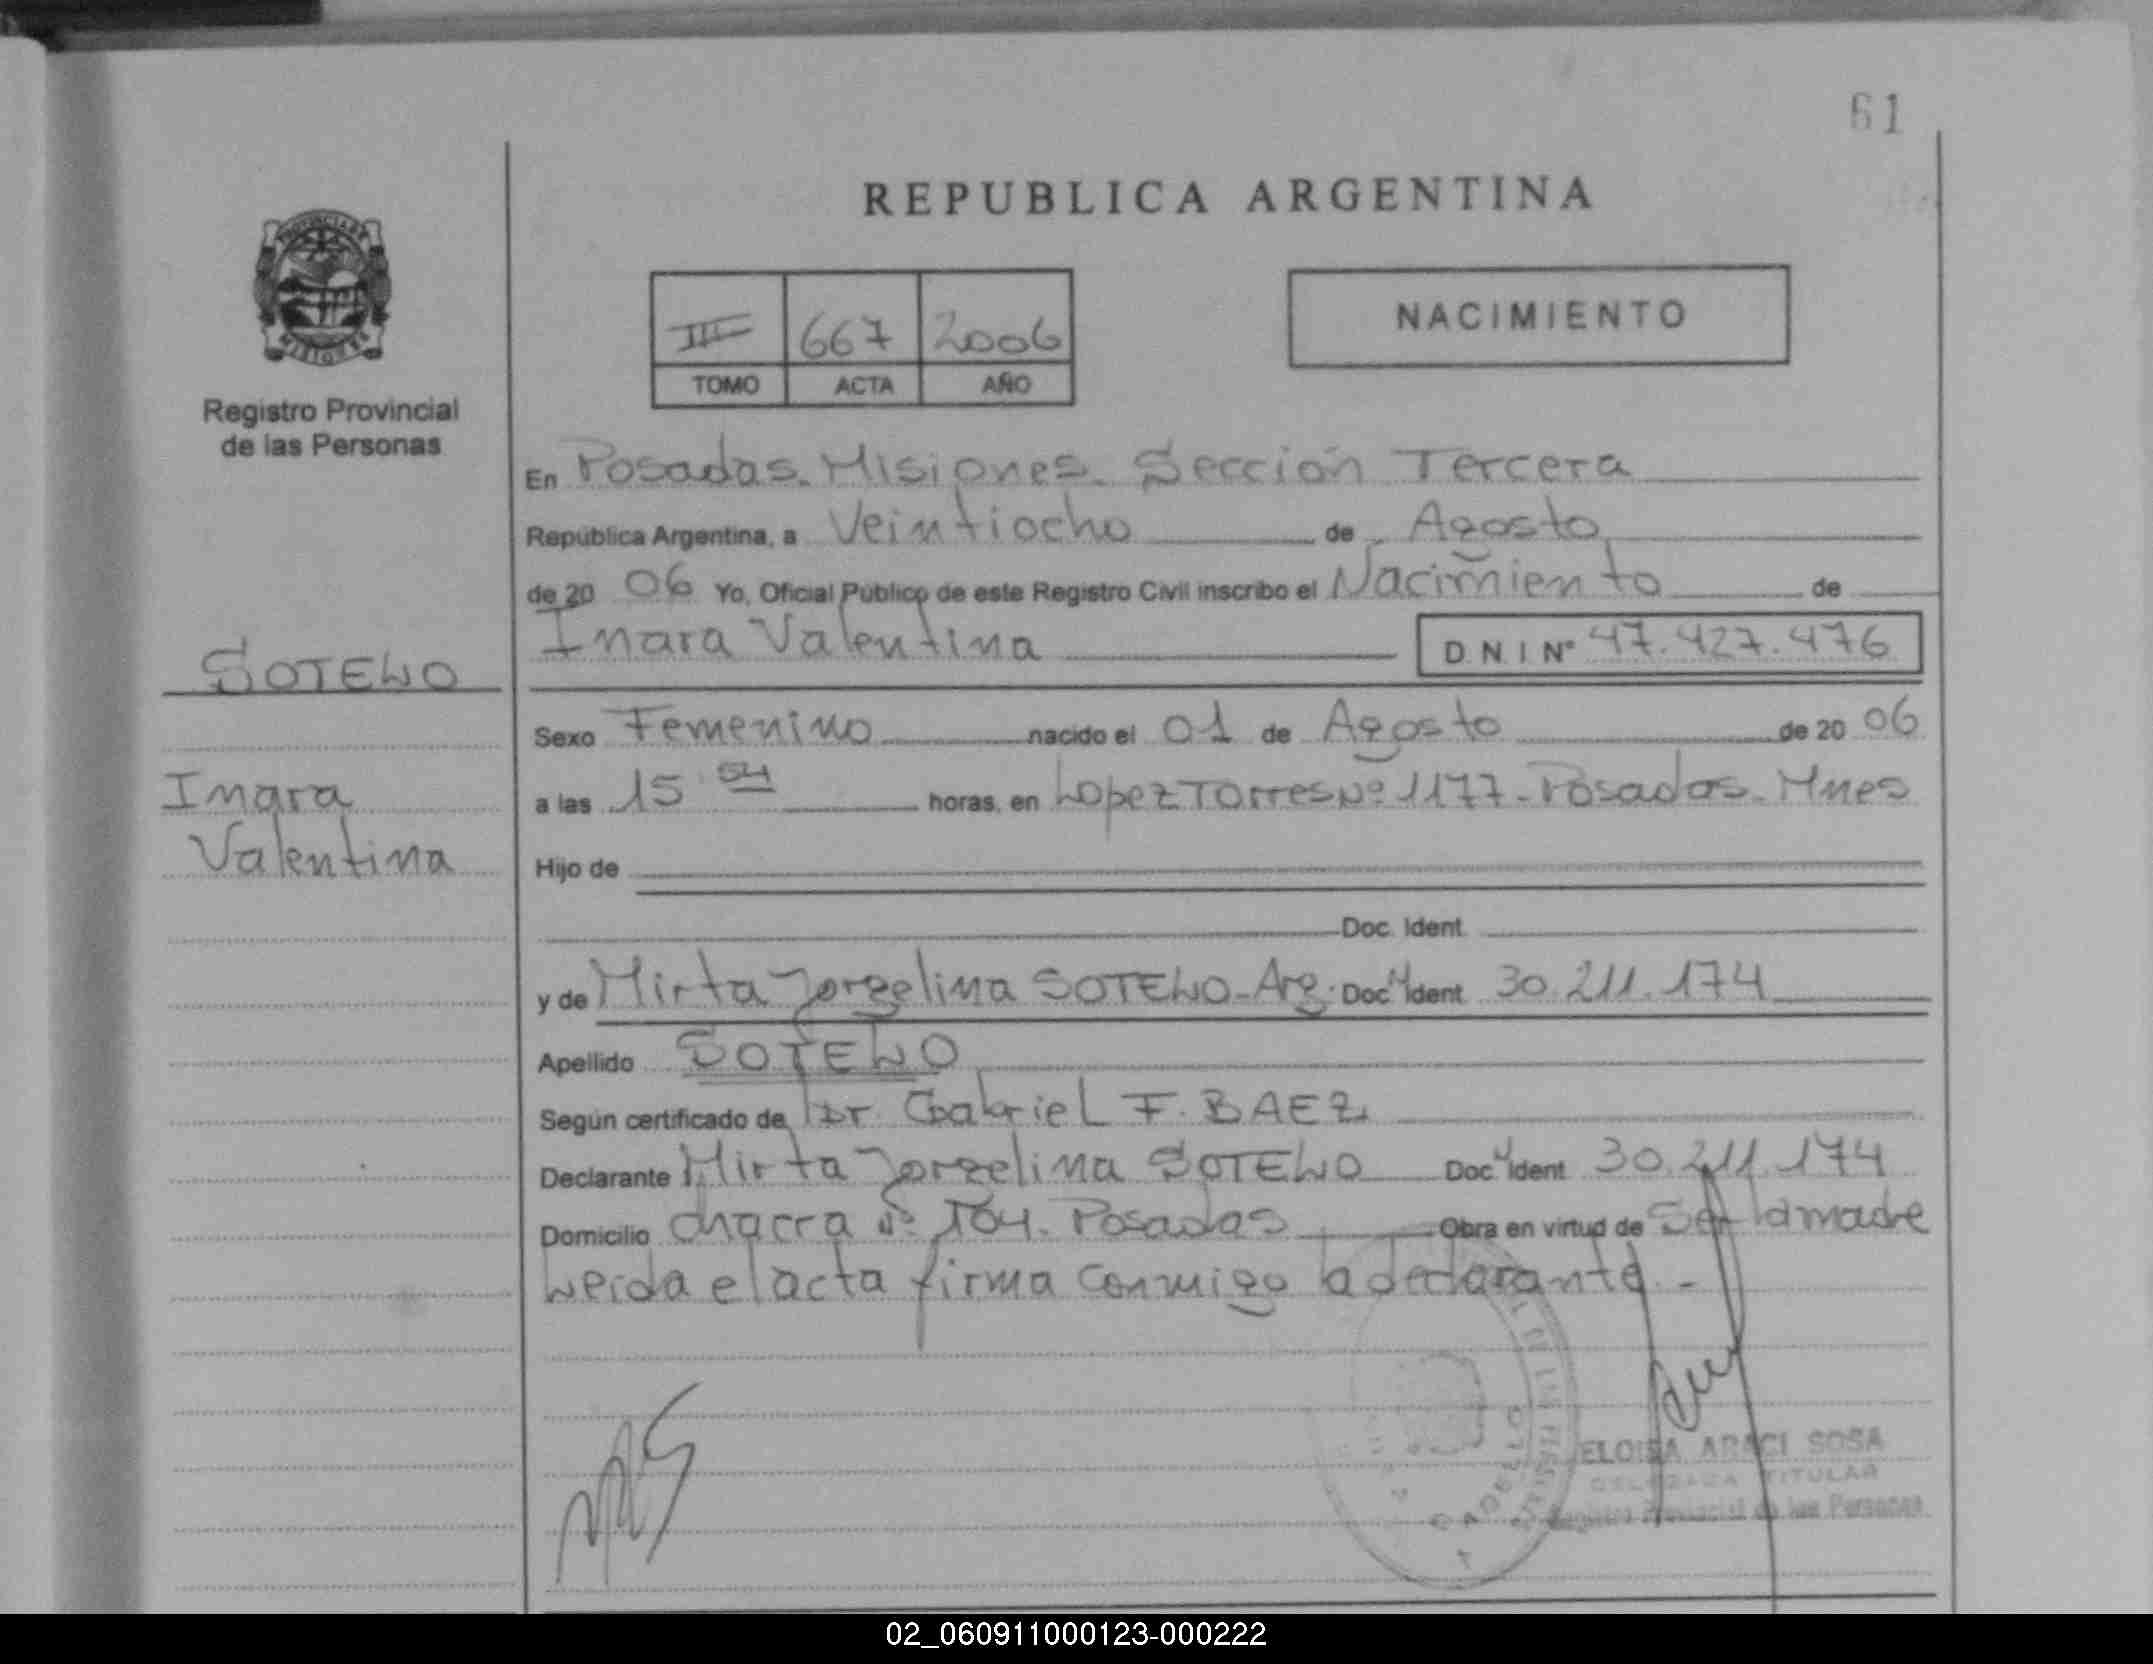 61
REPUBLICA ARGENTINA
PROVINCIA DE
MISIONES
Registro Provincial
de las Personas
III 667 2006
TOMO ACTA AÑO
NACIMIENTO
En Posadas. Misiones. Sección Tercera
República Argentina, a Veintiocho de Agosto
de 20 06 Yo, Oficial Público de este Registro Civil inscribo el Nacimiento de
Inara Valentina D.N.I Nº 47.427.476
SOTELO
Inara
Valentina
Sexo Femenino nacido el 01 de Agosto de 20 06
a las 15 54 horas, en Lopez Torres Nº 1177. Posadas. Mnes
Hijo de
Doc. Ident.
y de Mirta Jorgelina SOTELO. Arg. Doc. Ident. 30.211.174
Apellido SOTELO
Según certificado de Dr. Gabriel F. BAEZ
Declarante Mirta Jorgelina SOTELO Doc. Ident. 30.211.174
Domicilio chacra Nº 104. Posadas Obra en virtud de Ser la madre
Leida el acta firma conmigo la declarante.-
ELOISA ARACI SOSA
DELEGADA TITULAR
Registro Provincial de las Personas
02_060911000123-000222